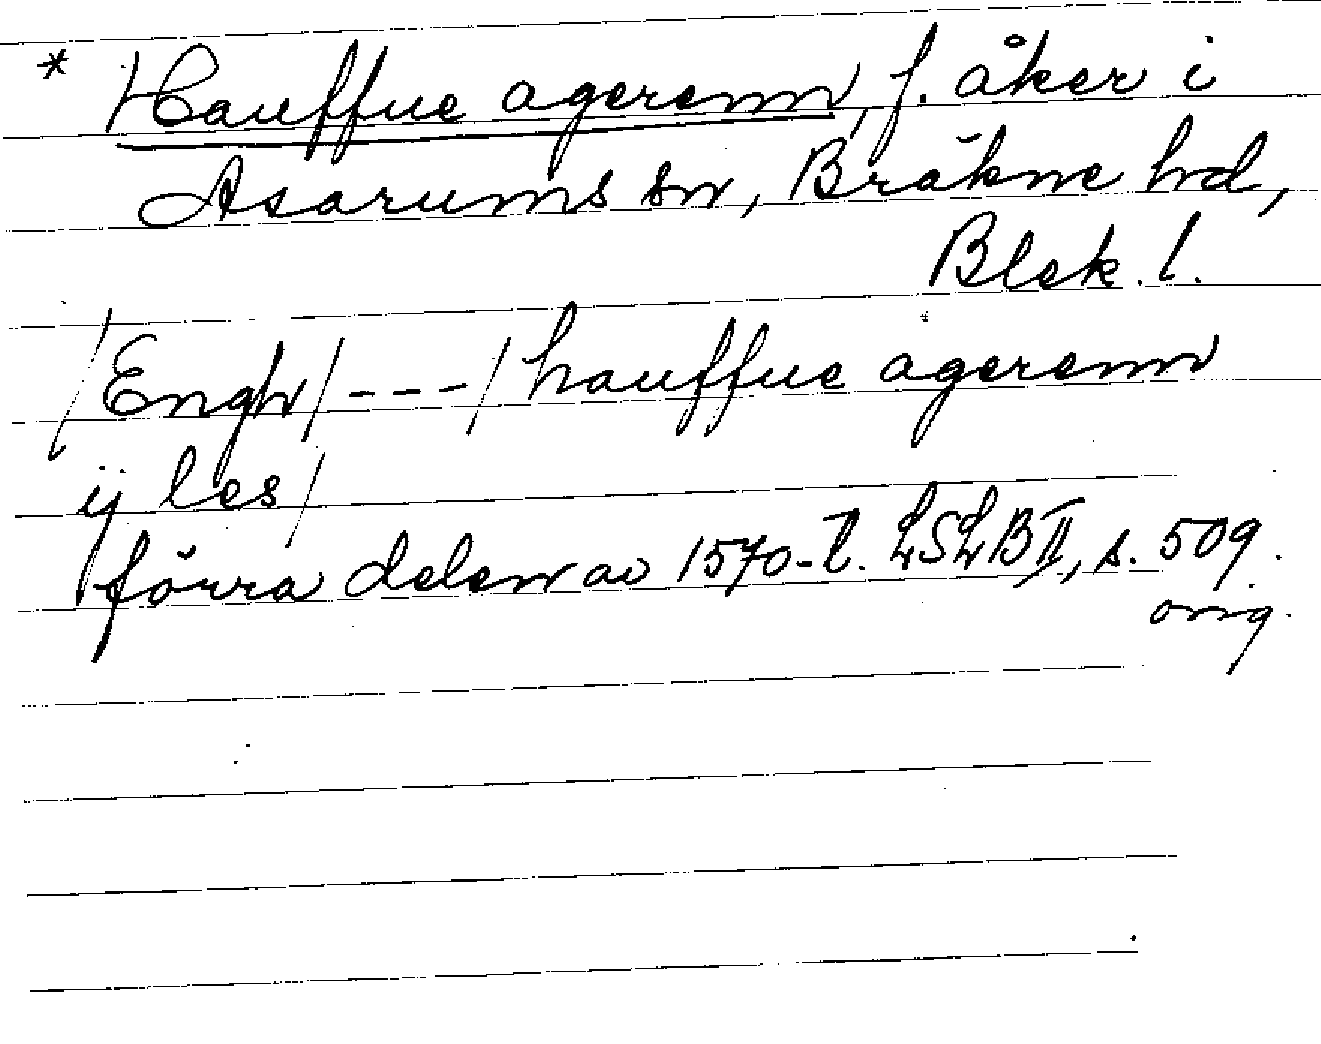 * Hauffue agerenn, f. åker i
Asarums sn, Bräkne hd,
Blek. l.
/Engh/---/hauffue agerenn
ij les/
förra delen av 1570-t. LSLB II, s. 509.
orig.